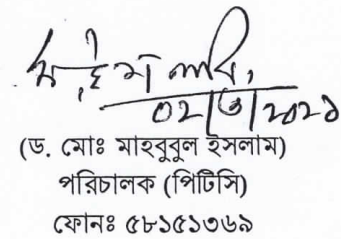 ০২/৩/২০২১
(ড. মোঃ মাহবুবুল ইসলাম)
পরিচালক (পিটিসি)
ফোনঃ ৫৮১৫১৩৬৯